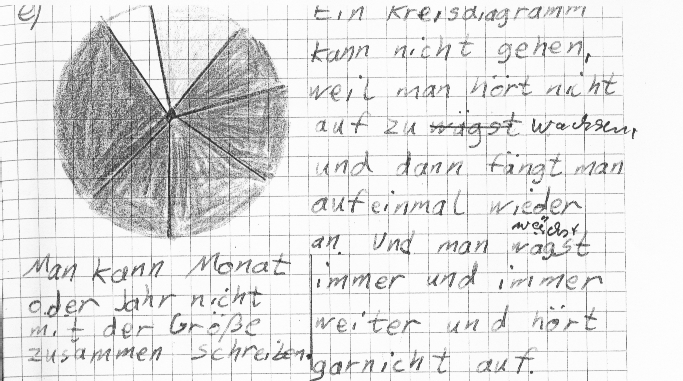 e)
Ein Kreisdiagramm
kann nicht gehen,
weil man hört nicht
auf zu wägst wachsen,
und dann fängt man
aufeinmal wieder
wächst
an. Und man wägst
immer und immer
weiter und hört
garnicht auf.
Man kann Monat
oder Jahr nicht
mit der Größe
zusammen schreiben.